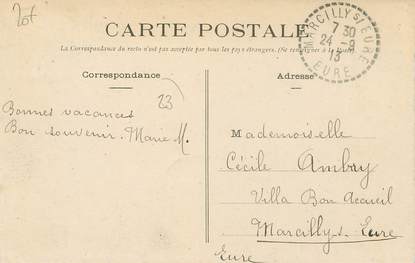 CARTE POSTALE
La Correspondance du recto n'est pas acceptée par tous les pays étrangers. (Se renseigner à la Poste)
MARCILLY S/ EURE
7 30
24 -9
13
EURE
Correspondance
Adresse
23
Bonnes vacances
Bon souvenir. Marie M.
Mademoiselle
Cécile Ambry
Villa Bon Accueil
Marcilly s. Eure
Eure